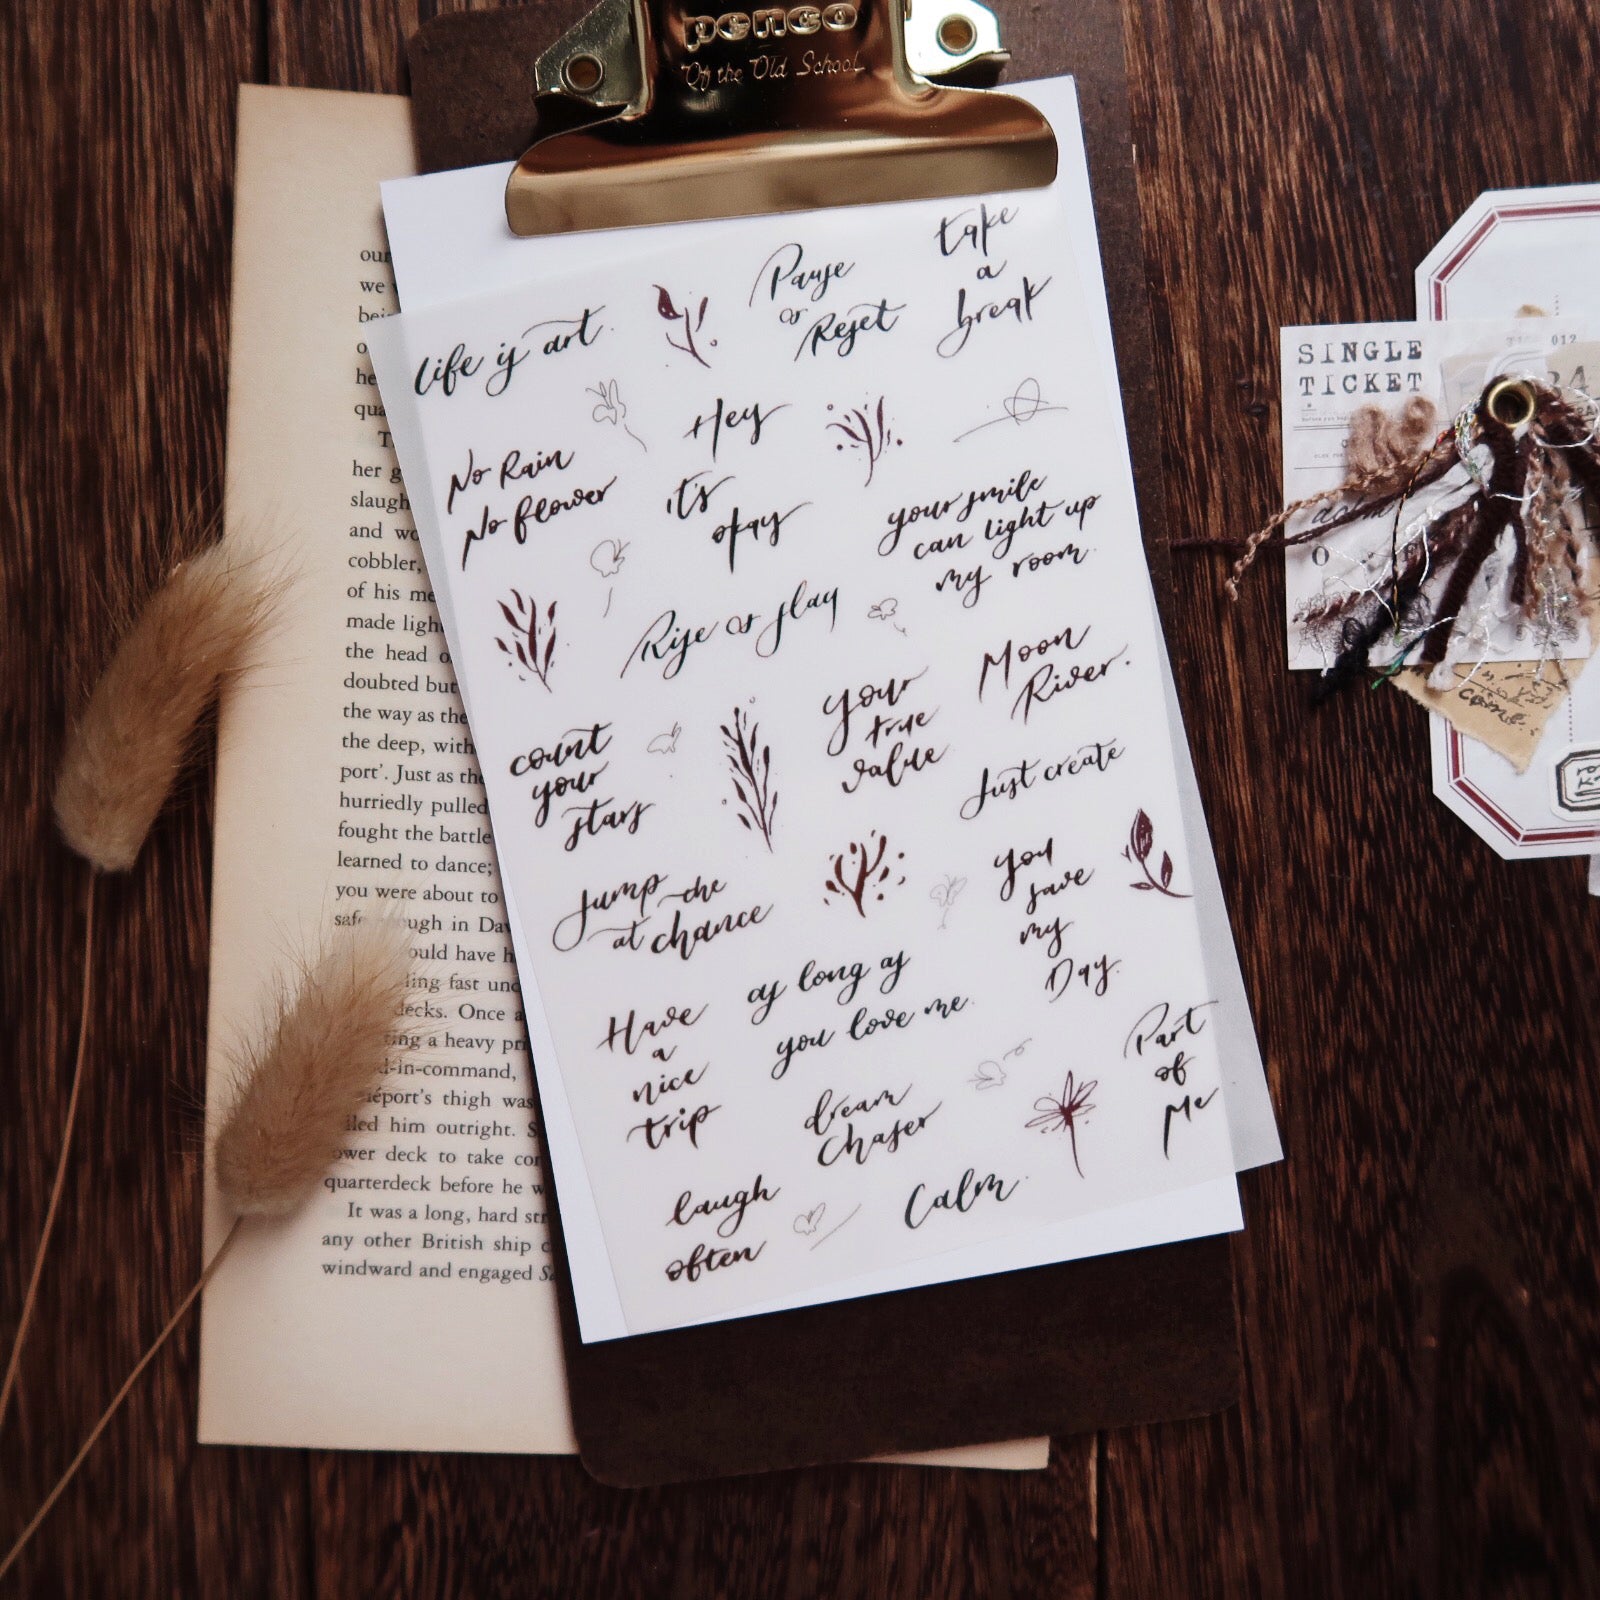 penco
Of the Old School
take
a
break
Pause
or
Reset
life is art.
Hey
it's
okay
No Rain
No flower
your smile
can light up
my room.
Rise or slay
Moon
River.
your
true
value
count
your
stars
Just create
Jump the
at chance
you
save
my
Day.
as long as
you love me.
Have
a
nice
trip
Part
of
Me
dream
Chaser
Calm.
laugh
often
our
we
he
her g
slaugh
and wo
cobbler,
of his me
made ligh
the head o
doubted but
the way as the
the deep, with
port'. Just as the
hurriedly pulled
fought the battle
learned to dance;
you were about to
ugh in Dav
ould have h
ling fast und
decks. Once a
ing a heavy pri
d-in-command,
éport's thigh was
led him outright. S
ower deck to take con
quarterdeck before he w
It was a long, hard str
any other British ship
windward and engaged
SINGLE
TICKET
012
come.